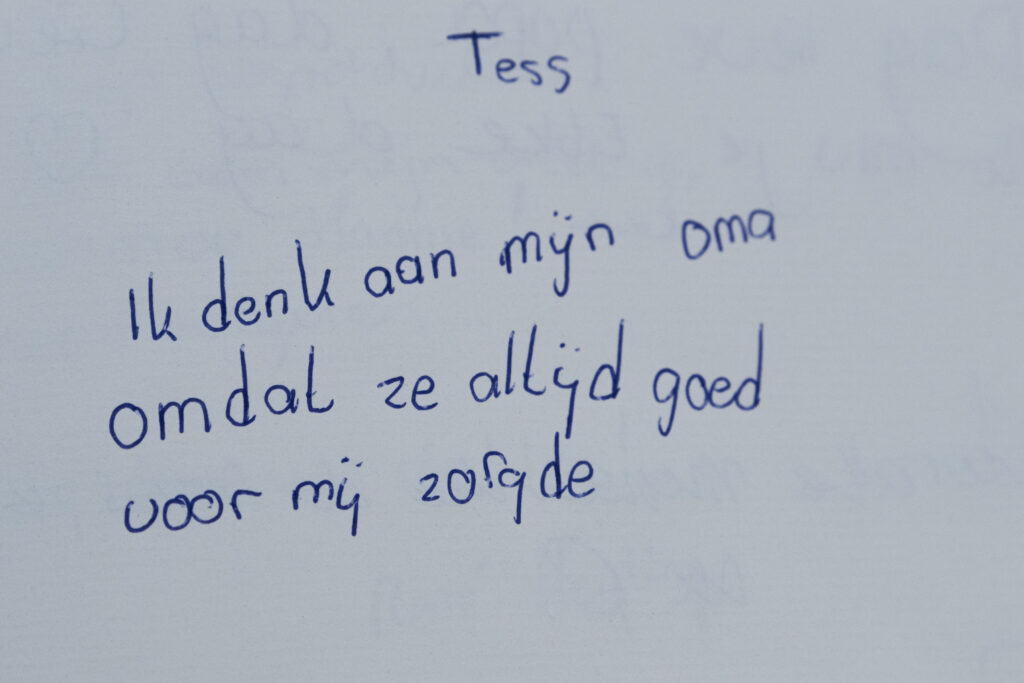 Tess
Ik denk aan mijn oma
omdat ze altijd goed
voor mij zorgde